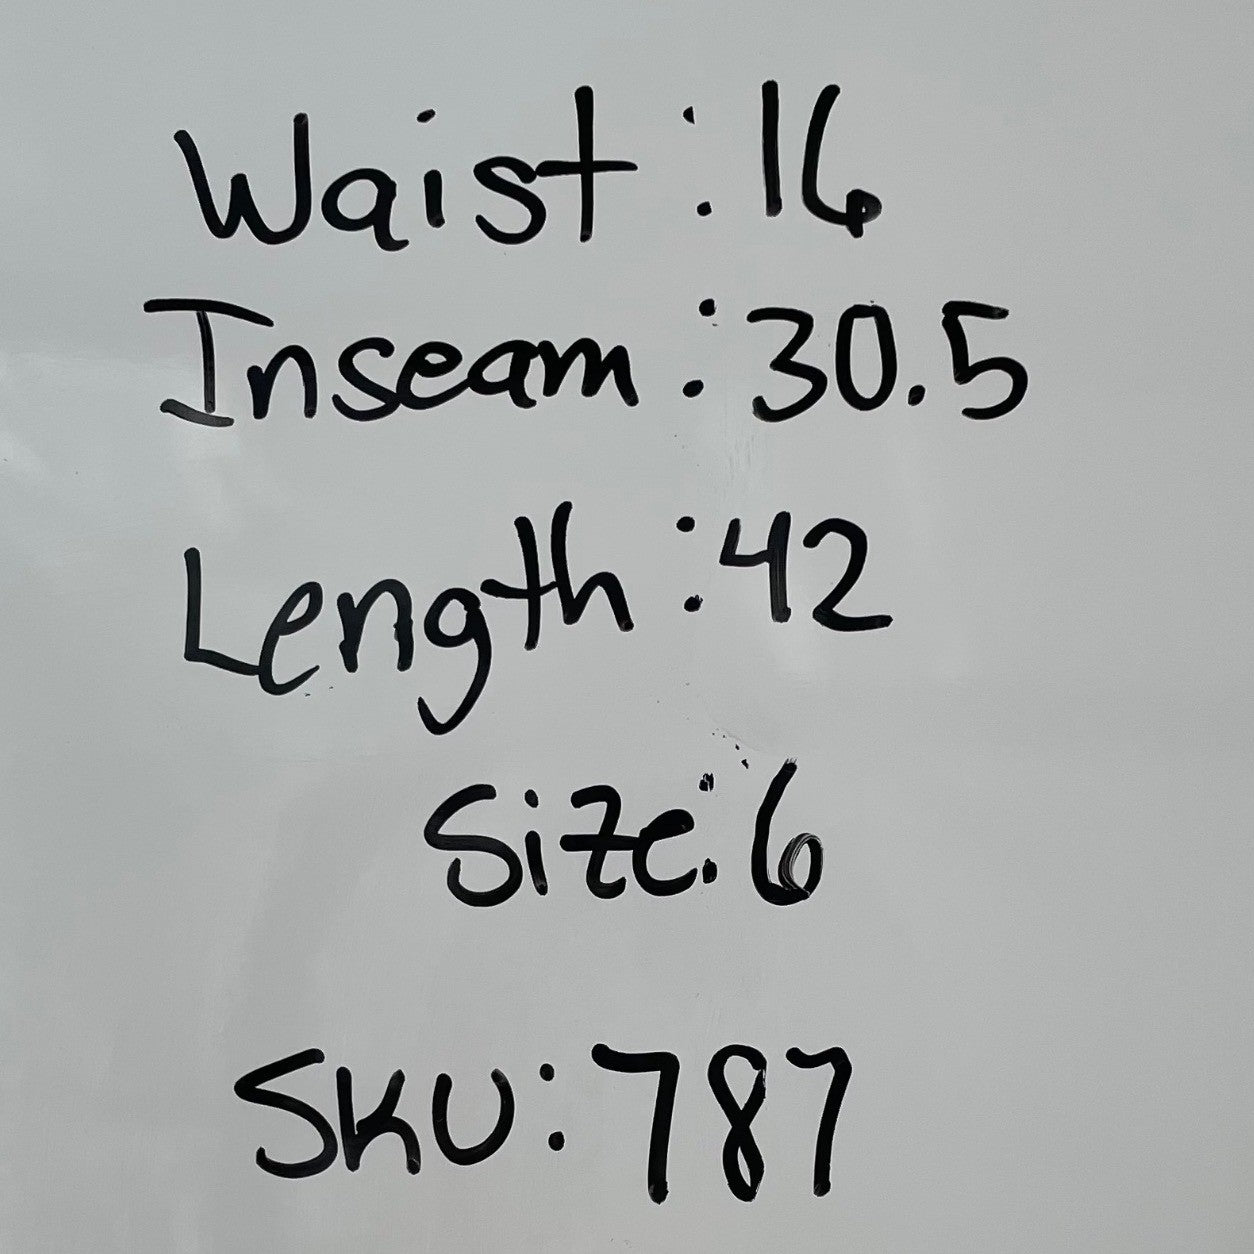 Waist : 16
Inseam : 30.5
Length : 42
Size: 6
SKU: 787